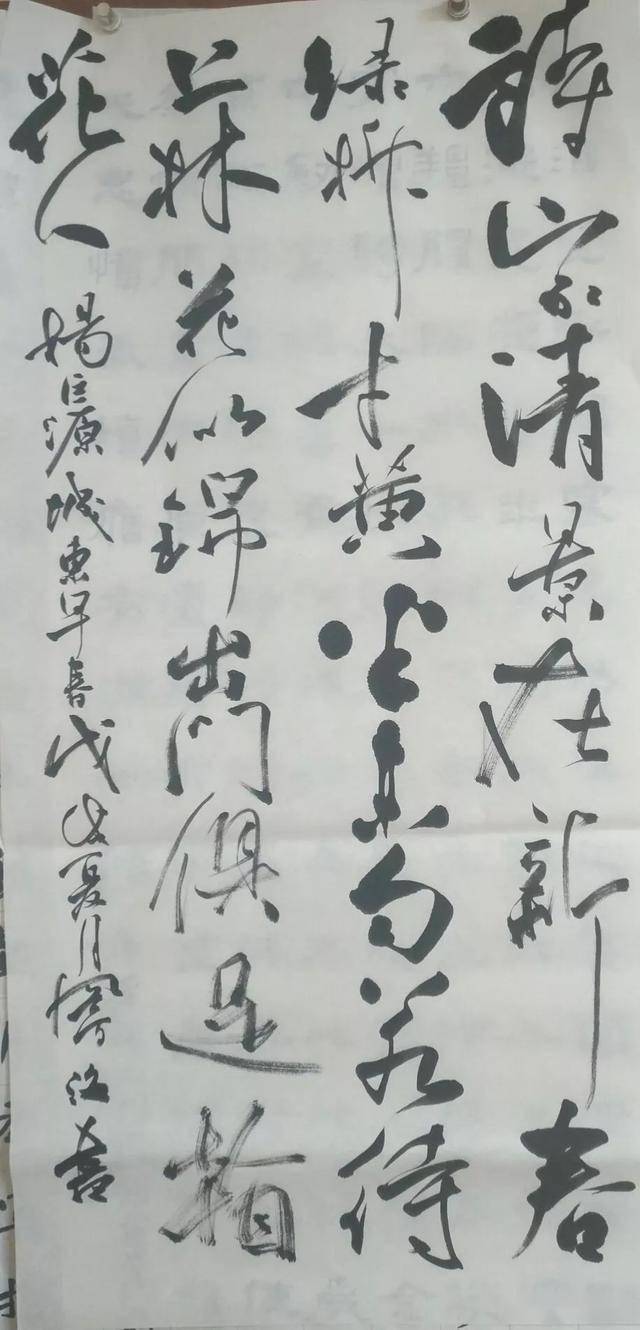 詩家清景在新春
绿柳才黄半未匀若待
上林花似锦出門俱是看
花人 楊巨源城東早春戊戌夏月